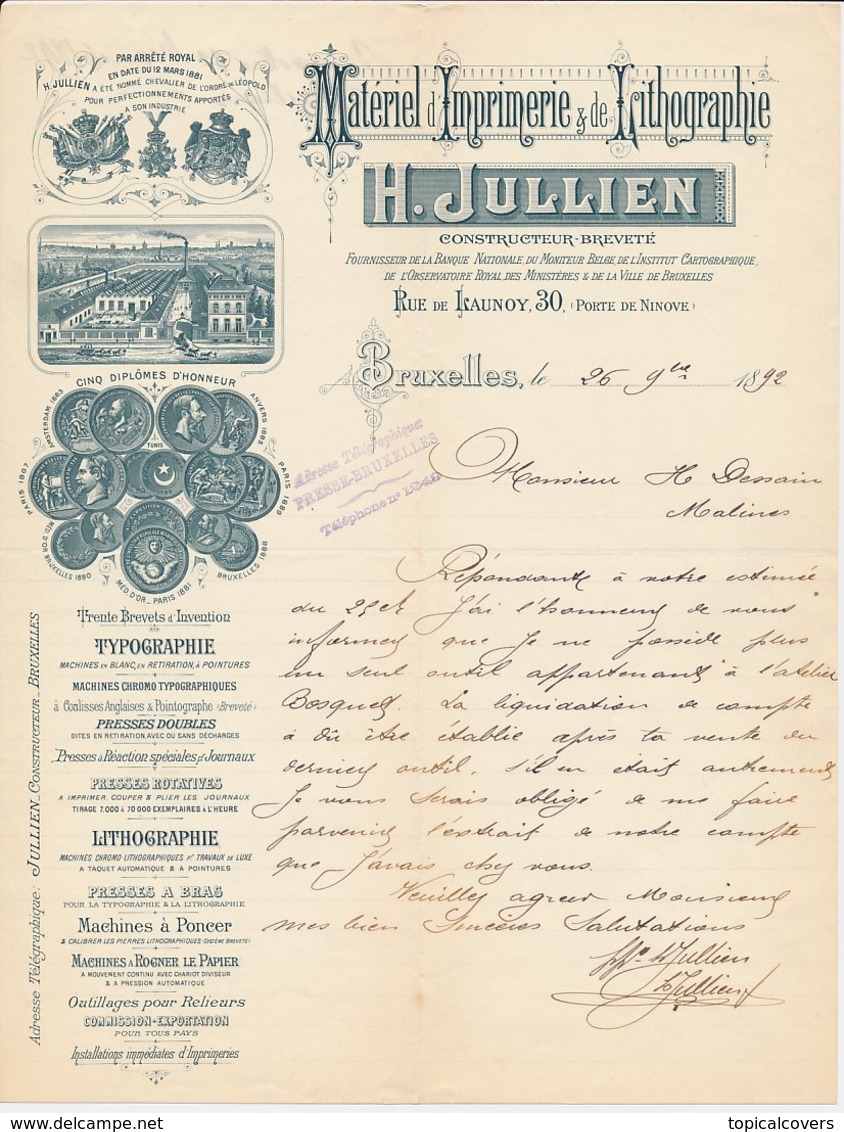 PAR ARRÊTÉ ROYAL
EN DATE DU 12 MARS 1881
H. JULLIEN A ÉTÉ NOMMÉ CHEVALIER DE L'ORDRE DE LÉOPOLD
POUR PERFECTIONNEMENTS APPORTÉS
A SON INDUSTRIE
Matériel d'Imprimerie & de Lithographie
H. JULLIEN
CONSTRUCTEUR-BREVETÉ
FOURNISSEUR DE LA BANQUE NATIONALE, DU MONITEUR BELGE, DE L'INSTITUT CARTOGRAPHIQUE,
DE L'OBSERVATOIRE ROYAL, DES MINISTÈRES & DE LA VILLE DE BRUXELLES
RUE DE LAUNOY, 30, (PORTE DE NINOVE)
Bruxelles, le 26 9bre 1892
CINQ DIPLÔMES D'HONNEUR
AMSTERDAM 1883
ANVERS 1885
TUNIS
PARIS 1867
PARIS 1889
MÉD. D'OR BRUXELLES 1880
MÉD. D'OR_PARIS 1881
BRUXELLES 1888
Adresse Télégraphique:
PRESSE-BRUXELLES
Téléphone n°
Monsieur H Dessain
Malines
Répondant à votre estimée
du 25 ct J'ai l'honneur de vous
informer que Je ne possède plus
un seul outil appartenant à l'atelier
Bosquet. La liquidation de compte
à dû être établie après la vente du
dernier outil, s'il en était autrement
Je vous serais obligé de me faire
parvenir l'extrait de notre compte
que J'avais chez vous.
Veuillez agréer Monsieur
mes bien Sincères Salutations
H Jullien
H Jullien
Trente Brevets d'Invention
TYPOGRAPHIE
MACHINES EN BLANC, EN RETIRATION, À POINTURES
MACHINES CHROMO TYPOGRAPHIQUES
à Coalisses Anglaises & Pointographe (Breveté)
PRESSES DOUBLES
DITES EN RETIRATION, AVEC OU SANS DÉCHARGES
Presses à Réaction spéciales pr Journaux
PRESSES ROTATIVES
A IMPRIMER, COUPER & PLIER LES JOURNAUX
TIRAGE 7.000 à 70 000 EXEMPLAIRES À L'HEURE
LITHOGRAPHIE
MACHINES CHROMO-LITHOGRAPHIQUES Pr TRAVAUX DE LUXE
A TAQUET AUTOMATIQUE & A POINTURES
PRESSES A BRAS
POUR LA TYPOGRAPHIE & LA LITHOGRAPHIE
Machines à Poncer
& CALIBRER LES PIERRES LITHOGRAPHIQUES (SYSTÈME BREVETÉ)
MACHINES A ROGNER LE PAPIER
A MOUVEMENT CONTINU AVEC CHARIOT DIVISEUR
& A PRESSION AUTOMATIQUE
Outillages pour Relieurs
COMMISSION-EXPORTATION
POUR TOUS PAYS
Installations immédiates d'Imprimeries
Adresse Télégraphique: JULLIEN_CONSTRUCTEUR_BRUXELLES
www.delcampe.net
topicalcovers